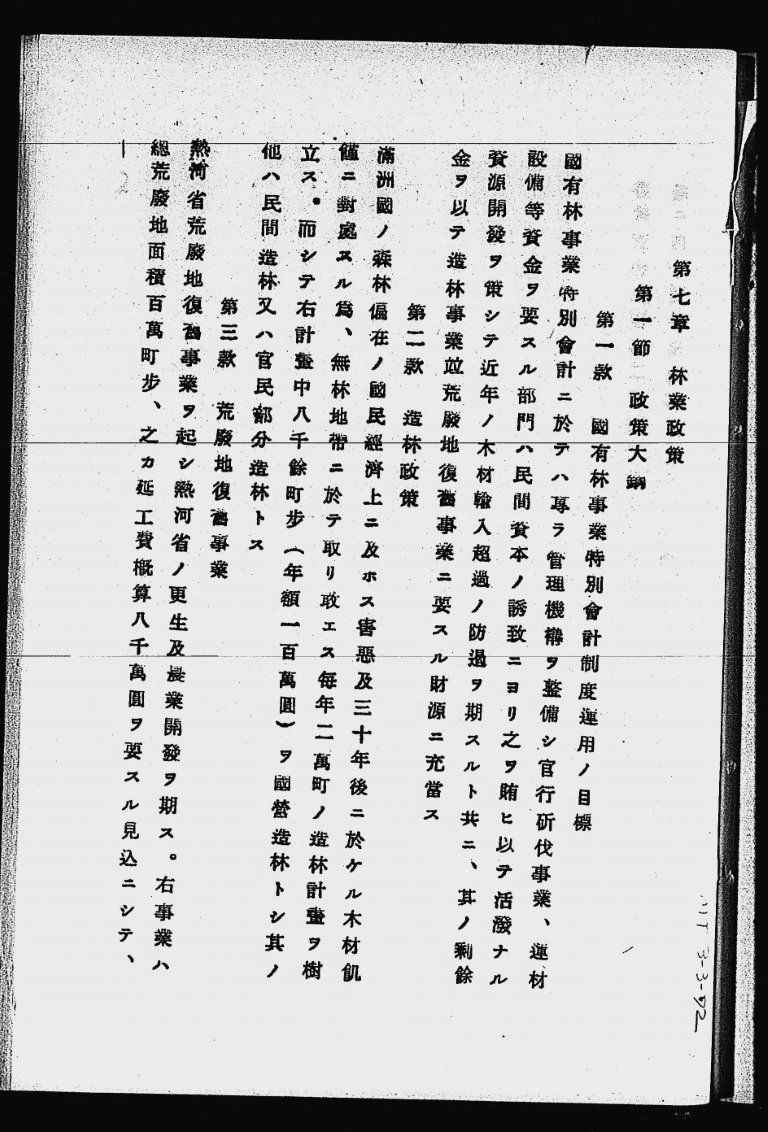 第七章　林業政策
第一節　政策大綱
第一款　國有林事業特別會計制度運用ノ目標
國有林事業特別會計ニ於テハ專ラ管理機構ヲ整備シ官行斫伐事業、運材
設備等資金ヲ要スル部門ハ民間資本ノ誘致ニヨリ之ヲ賄ヒ以テ活潑ナル
資源開發ヲ策シテ近年ノ木材輸入超過ノ防遏ヲ期スルト共ニ、其ノ剩餘
金ヲ以テ造林事業竝荒廢地復舊事業ニ要スル財源ニ充當ス
第二款　造林政策
滿洲國ノ森林偏在ノ國民經濟上ニ及ホス害惡及三十年後ニ於ケル木材飢
饉ニ對處スル爲、無林地帶ニ於テ取リ敢エス每年二萬町ノ造林計畫ヲ樹
立ス。而シテ右計畫中八千餘町步（年額一百萬圓）ヲ國營造林トシ其ノ
他ハ民間造林又ハ官民部分造林トス
第三款　荒廢地復舊事業
熱河省荒廢地復舊事業ヲ起シ熱河省ノ更生及農業開發ヲ期ス。右事業ハ
總荒廢地面積百萬町步、之カ延工費槪算八千萬圓ヲ要スル見込ニシテ、
3-3-92